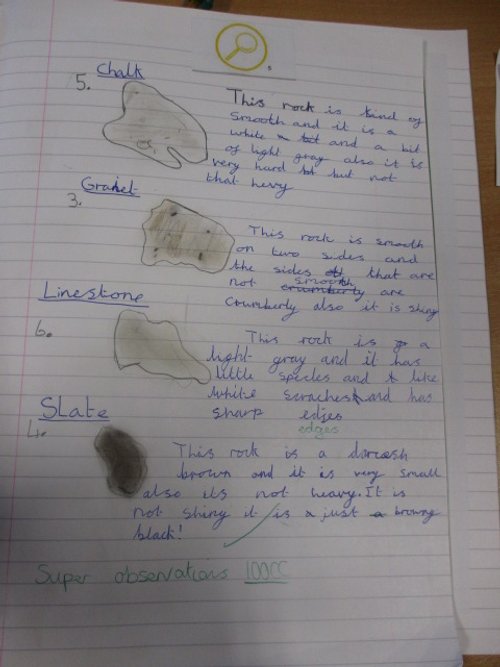 Chalk
5.
This rock is kind of
smooth and it is a
white a bit and a bit
of light gray also it is
very hard bt but not
that hevy
Graniet
3.
This rock is smooth
on two sides and
the sides of that are
not smooth
crumberly are
Crumberly also it is shiny
Linestone
6.
This rock is a
light gray and it has
little specles and like
white scraches and has
sharp edjes
edges
Slate
4.
This rock is a darcesh
brown and it is very small
also its not heavy. It is
not shiny it is a just a browny
black!
Super observations 100CC